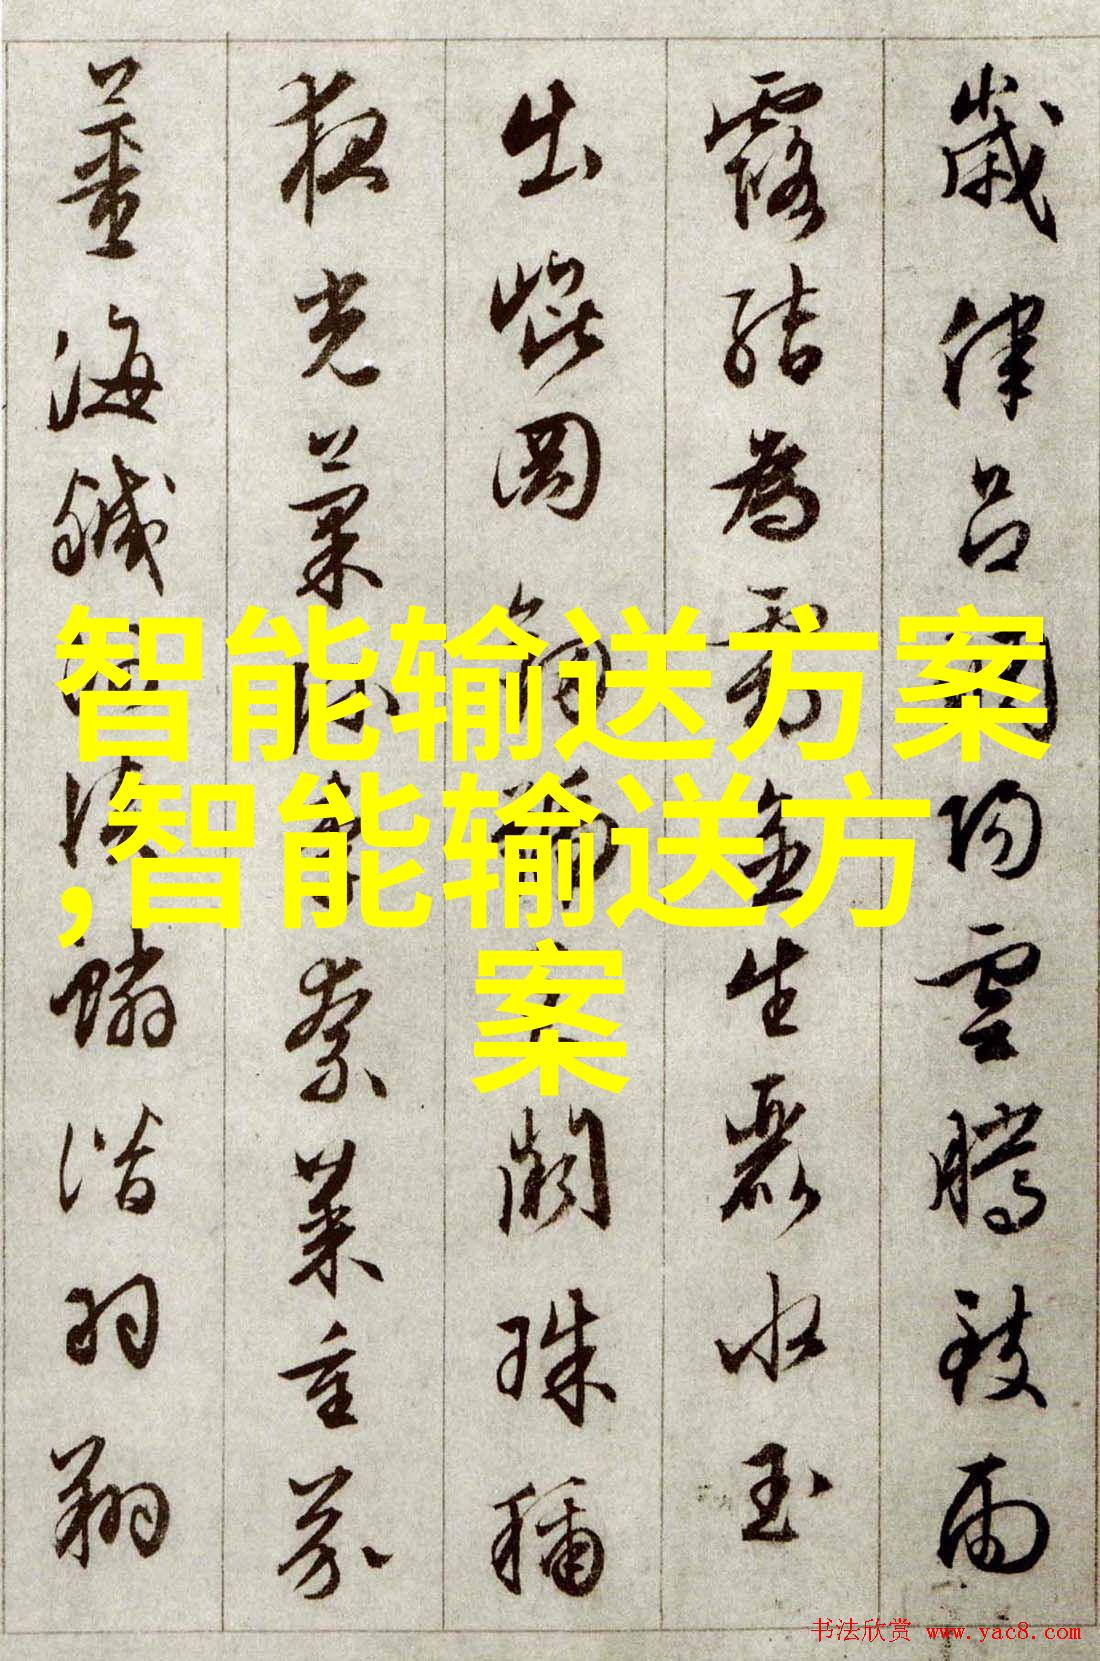 歲律呂調陽雲騰致雨
露結為霜金生麗水玉
出崑岡劍號巨闕珠稱
夜光菓珍李柰菜重芥
薑海鹹河淡鱗潛羽翔
智能输送方案
,智能输送方
案
书法欣赏 www.yac8.com